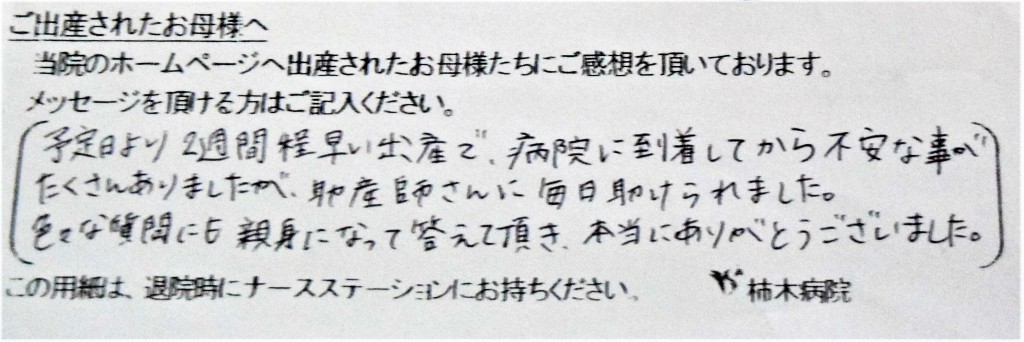 ご出産されたお母様へ
当院のホームページへ出産されたお母様たちにご感想を頂いております。
メッセージを頂ける方はご記入ください。
予定日より2週間程早い出産で、病院に到着してから不安な事が
たくさんありましたが、助産師さんに毎日助けられました。
色々な質問にも親身になって答えて頂き、本当にありがとうございました。
この用紙は、退院時にナースステーションにお持ちください。 柿木病院